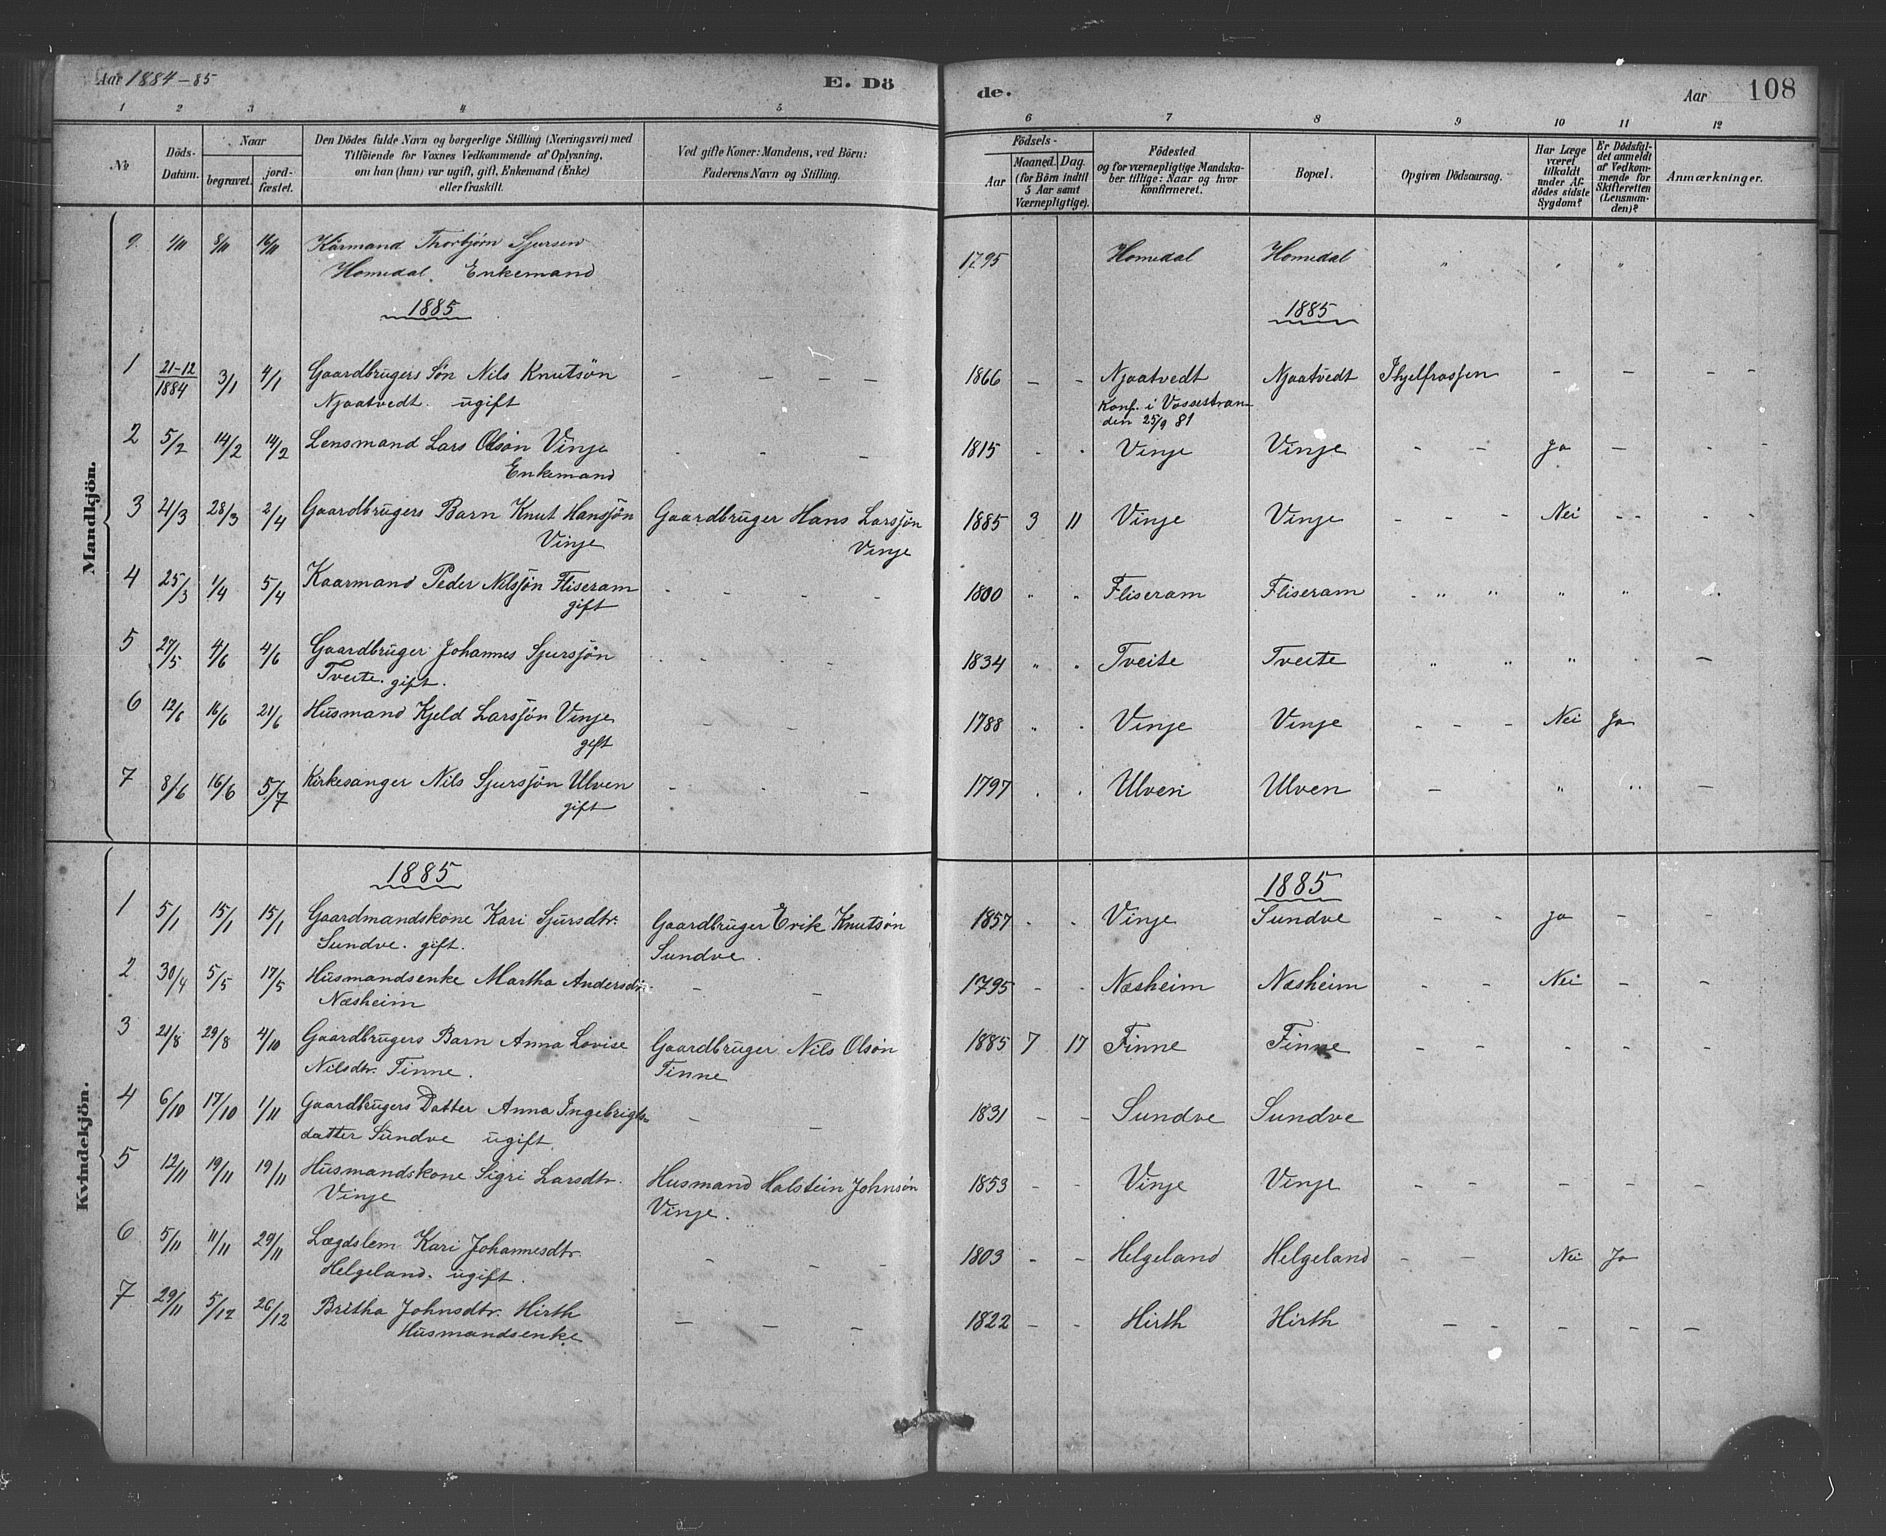 Aar 1884-85
E. Dö
de.
Aar
108
1 2 3 4 5
6 7 8 9 10 11 12
No
Döds-
Datum.
Naar
begravet.
jord-
fæstet.
Den Dödes fulde Navn og borgerlige Stilling (Næringsvei) med
Tilföiende for Voxnes Vedkommende af Oplysning,
om han (hun) var ugift, gift, Enkemand (Enke)
eller fraskilt.
Ved gifte Koner: Mandens, ved Börn:
Faderens Navn og Stilling.
Födsels-
Aar
Maaned. Dag.
(for Börn indtil
5 Aar samt
Værnepligtige).
Födested
og for værnepligtige Mandska-
ber tillige: Naar og hvor
konfirmeret.
Bopæl.
Opgiven Dödsaarsag.
Har Læge
været
tilkaldt
under Af-
dödes sidste
Sygdom?
Er Dödsfal-
det anmeldt
af Vedkom-
mende for
Skifteretten
(Lensman-
den)?
Anmærkninger.
Mandkjön.
9. 1/11 8/11 16/11 Kårmand Thorbjörn Sjursen
Homedal. Enkemand
1795 Homedal Homedal " " "
1885
1885
1 21-12/1884 3/1 4/1 Gaardbrugers Sön Nils Knutsön - - - -
Njaatvedt. ugift
1866 - - Njaatvedt Njaatvedt - - - -
Konf. i Vossestran-
den 25/9 81
2 5/2 14/2 14/2 Lensmand Lars Olsön Vinje
Enkemand
1815 Vinje Vinje - - Ja - - -
3 21/3 28/3 2/4 Gaardbrugers Barn Knut Hansjön Gaardbruger Hans Larsjön
Vinje Vinje
1885 3 11 Vinje Vinje - - - Nei - - - -
4 25/3 1/4 5/4 Kaarmand Peder Nilsjön Fliseram
gift
1800 " " Fliseram Fliseram " " " "
5 27/5 4/6 4/6 Gaardbruger Johannes Sjursjön
Tveite. gift.
1834 " " Tveite Tveite " " " -
6 12/6 16/6 21/6 Husmand Kjeld Larsjön Vinje
gift
1788 Vinje Vinje - - - Nei Ja
7 8/6 16/6 5/7 Kirkesanger Nils Sjursjön Ulven
gift
1797 Ulven Ulven - " " -
Kvindekjön.
1885
1885
1 5/1 15/1 15/1 Gaardmandskone Kari Sjursdtr. Gaardbruger Erik Knutsön
Sundve. gift. Sundve.
1857 - - Vinje Sundve - - Ja - -
2 30/4 5/5 17/5 Husmandsenke Martha Andersdtr. - -
Næsheim
1795 - - Næsheim Næsheim - - Nei - -
3 21/8 29/8 4/10 Gaardbrugers Barn Anna Lovise Gaardbruger Nils Olsön
Nilsdtr. Finne. Finne
1885 7 17 Finne Finne - - - - -
4 6/10 17/10 1/11 Gaardbrugers Datter Anna Ingebrigts- - -
datter Sundve ugift
1831 - - Sundve Sundve
5 12/11 19/11 19/11 Husmandskone Sigri Larsdtr. Husmand Halstein Johnsön
Vinje Vinje.
1853 - - Vinje Vinje - - - - -
6 5/11 11/11 29/11 Lægdslem Kari Johannesdtr. - - -
Helgeland. ugift.
1803 - - Helgeland Helgeland - - Nei Ja
7 29/11 5/12 26/12 Britha Johnsdtr. Hirth - - -
Husmandsenke
1822 - - Hirth Hirth - - - - -